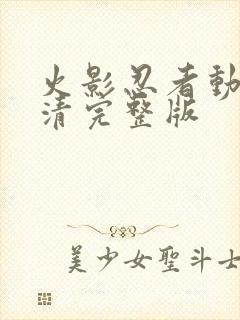 火影忍者動
清完整版
美少女聖斗士